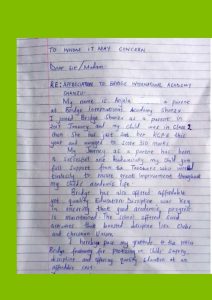 TO WHOM IT MAY CONCERN
Dear Sir/Madam
RE: APPRECIATION TO BRIDGE INTERNATIONAL ACADEMY
SHANZU.
My name is a parent
at Bridge International Academy Shanzu
I joined Bridge Shanzu as a parent in
2017 January and my child was in Class 2
then she has just sat her KCPE this
year and managed to score 310 marks
My journey as a parent has been
a successful and my child got
full support from the Teachers who
tirelessly to ensure great improvement throughout
my child's academic life.
Bridge has also offered affordable
yet quality Education. Discipline was key
in ensuring that good academic progress
is maintained. The school offered
activities that boosted discipline like clubs
and christian Union.
I hereby pass my gratitude to the
Bridge for my child safety
discipline and offering quality education at an
affordable cost